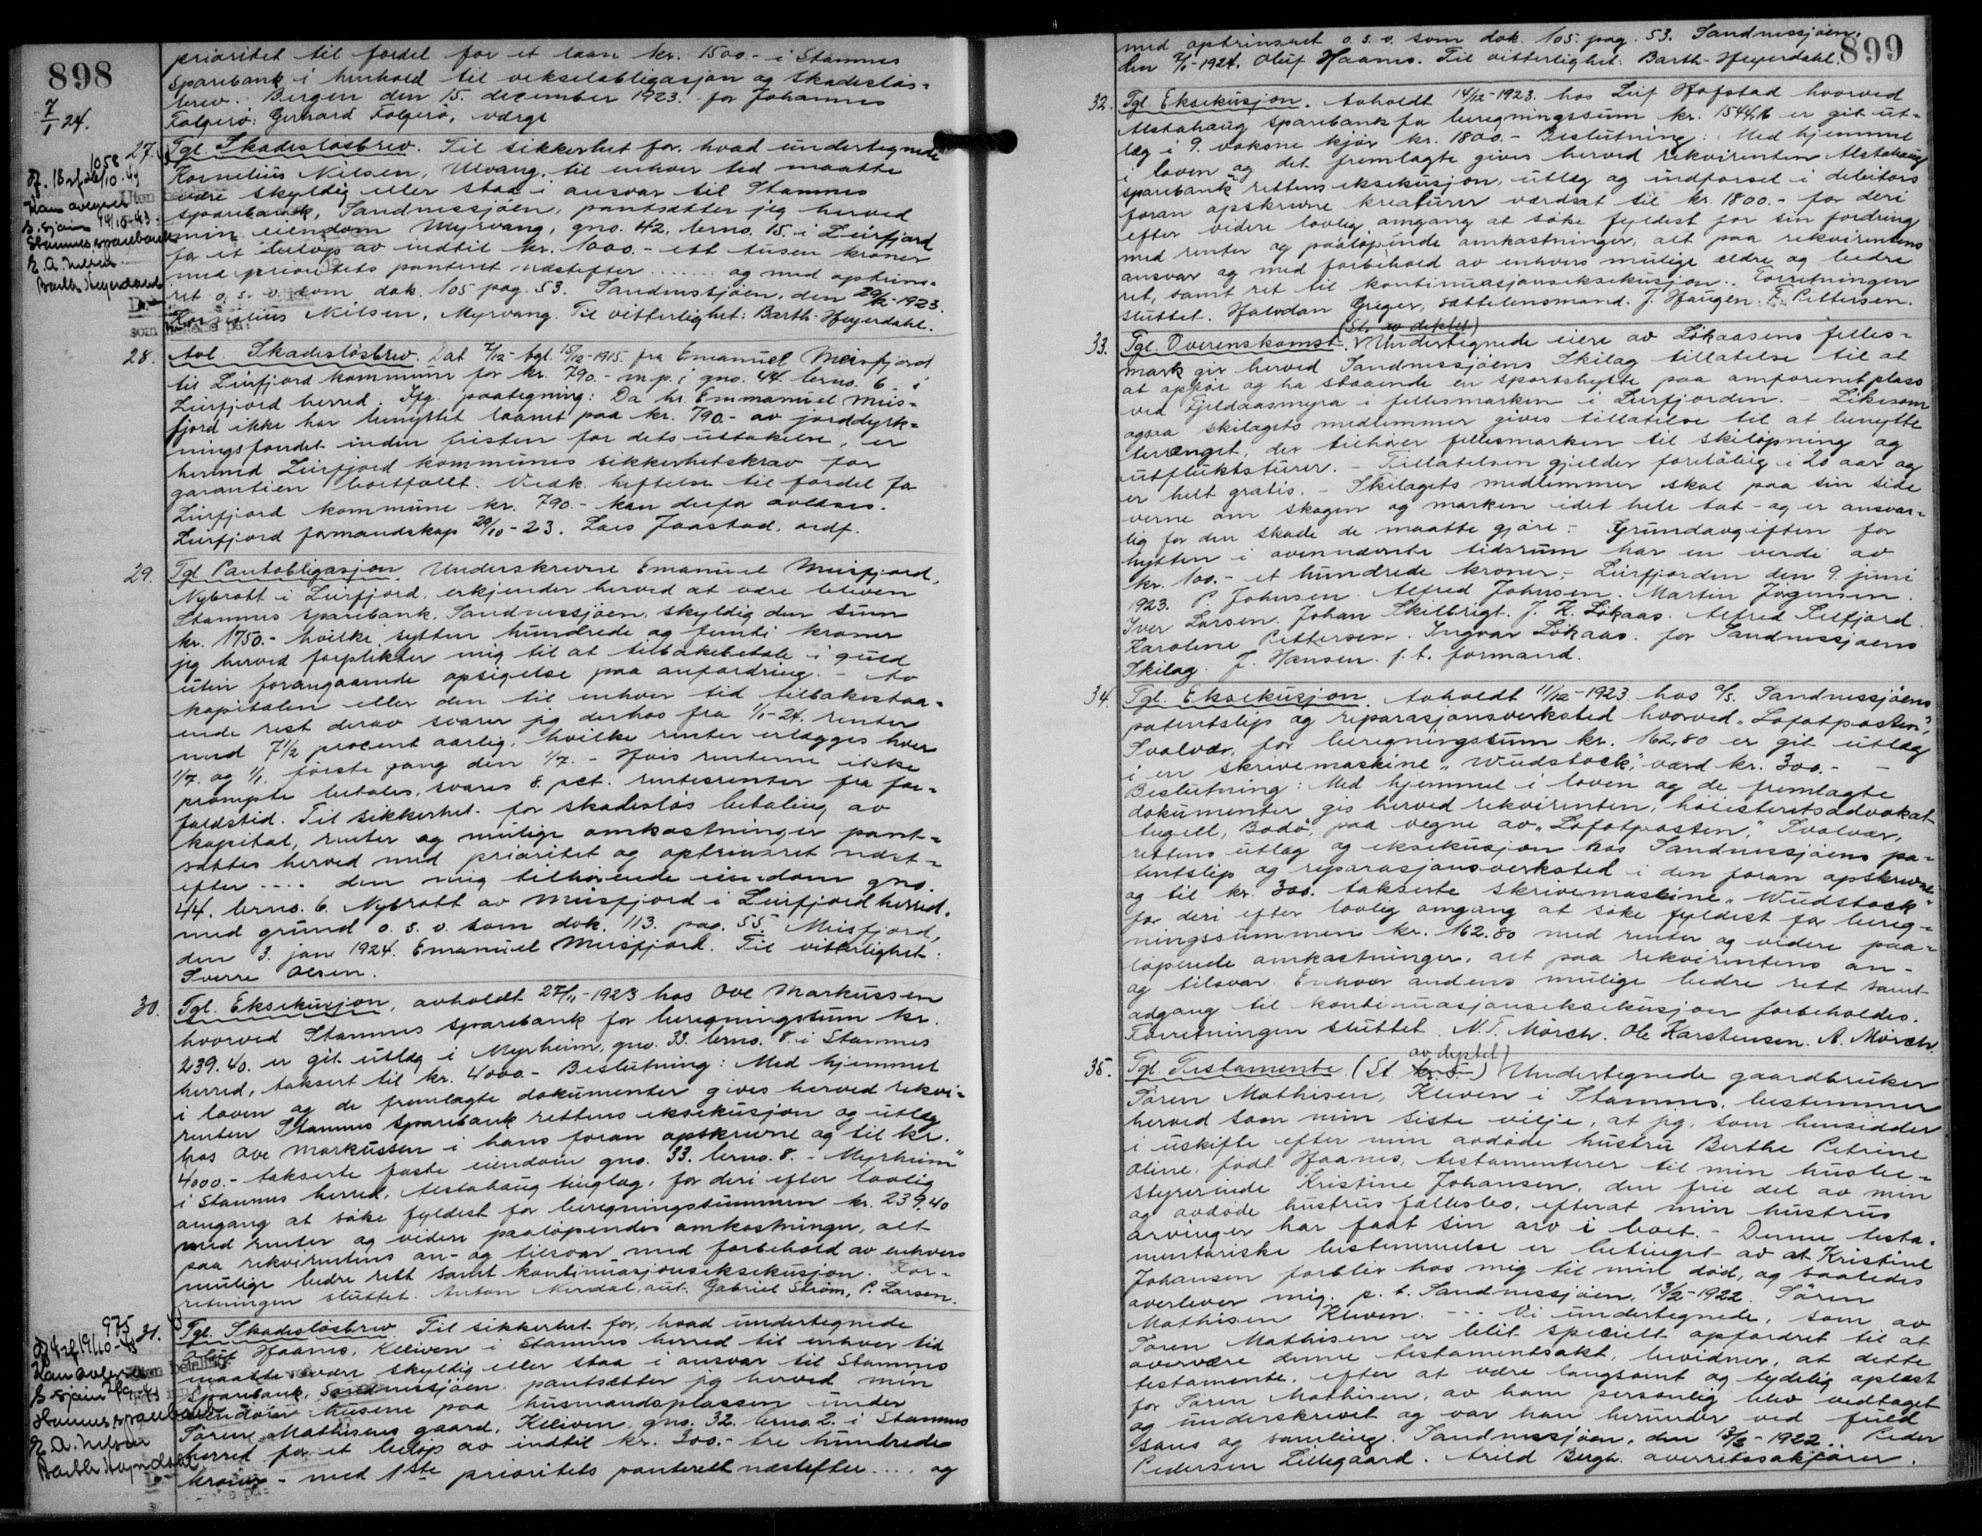 898
7/1 24.
prioritet til fordel for et laan kr. 1500.- i Stamnes
Sparebank i henhold til vekselobligasjon og skadesløs-
brev. Bergen den 15. december 1923. for Johannes
Følgerø: Gerhard Følgerø, værge
27. Tgl. Skadesløsbrev. Til sikkerhet for, hvad undertegnede
Kornelius Nilsen, Ulvang, til enhver tid maatte
være skyldig eller staa i ansvar til Stamnes
sparebank, Sandnessjøen, pantsætter jeg herved
min eiendom Myrvang, gno. 42, brno. 15 i Leirfjord
for et beløp av indtil kr. 1000.- ett tusen kroner
med prioritets panteret næstefter ...... og med optrins-
ret o. s. v. som dok. 105 pag. 53. Sandnessjøen, den 29/12-1923.
Kornelius Nilsen, Myrvang. Til vitterlighet: Barth-Heyerdahl.
1058
Hans avlyses
Stamnes sparebank
E. A. Nilsen
Barth Heyerdahl
28. Avl. Skadesløsbrev. Dat 7/12- tgl. 15/12-1915. fra Emanuel Meisfjord
til Leirfjord kommune for kr. 790.- m.p. i gno. 44. brno. 6. i
Leirfjord herred. Iflg. paategning: Da hr. Emmanuel Meis-
fjord ikke har benyttet laanet paa kr. 790.- av jorddyrk-
ningsfondet inden fristen for dets uttakelse, er
hermed Leirfjord kommunes sikkerhetskrav for
garantien bortfallt. Vedk. heftelse til fordel for
Leirfjord kommune kr. 790.- kan derfor avlæses.
Leirfjord formandskap 29/10-23. Lars Jaastad. ordf.
29. Tgl. Pantobligasjon. Underskrevne Emanuel Meisfjord,
Nybrott i Leirfjord, erkjender herved at være bleven
Stamnes sparebank, Sandnessjøen, skyldig den sum
kr. 1750.- hvilke sytten hundrede og femti kroner
jeg herved forplikter mig til at tilbakebetale i guld
uten forangaaende opsigelse paa anfordring. - Av
kapitalen eller den til enhver tid tilbakestaa-
ende rest derav svarer jeg derhos fra 1/1-24. renter
med 7 1/2 procent aarlig, hvilke renter erlægges hver
1/7. og 1/1. første gang den 1/7. - Hvis renterne ikke
prompte betales, svares 8. pct. rentesrenter fra for-
faldstid. Til sikkerhet for skadesløs betaling av
kapital, renter og mulige omkostninger pant-
sættes herved med prioritet og optrinsret næst-
efter .... den mig tilhørende eiendom gno.
44. brno. 6. Nybrott av Meisfjord i Leirfjord herred.
med grund o. s. v. som dok. 113. pag. 55. Meisfjord,
den 3. jan 1924. Emanuel Meisfjord. Til vitterlighet:
Sverre Olsen.
30. Tgl. Eksekusjon, avholdt 27/11-1923 hos Ove Markussen
hvorved Stamnes sparebank for beregningssum kr.
239.40. er git utlæg i Myrheim, gno. 33. brno. 8. i Stamnes
herred, taksert til kr. 4000.- Beslutning: Med hjemmel
i loven og de fremlagte dokumenter gives herved rekvi-
renten Stamnes sparebank rettens eksekusjon og utlæg
hos Ove Markussen i hans foran opskrevne og til kr.
4000.- takserte faste eiendom gno. 33. brno. 8. - Myrheim"
i Stamnes herred, Alstahaug tinglag, for deri efter lovlig
omgang at søke fyldest for beregningssummen kr. 239.40
med renter og videre paaløpendes omkostninger, alt
paa rekvirentens an- og tilsvar med forbehold av enhvers
mulige bedre rett samt kontinuasjonseksekusjon. For-
retningen sluttet. Anton Nerdal, aut. Gabriel Strøm, P. Larsen.
31. Tgl. Skadesløsbrev. Til sikkerhet for, hvad undertegnede
Oluf Haanes, Kleiven i Stamnes herred til enhver tid
maatte være skyldig eller staa i ansvar til Stamnes
Sparebank, Sandnessjøen, pantsætter jeg herved min
eiendom husene paa husmandsplassen under
Sørene Mathisens gaard, Kleiven, gno. 32. brno. 2. i Stamnes
herred for et beløp av indtil kr. 300.- tre hundrede
kroner - med 1ste prioritets panterett næstefter ... og
975
Hans avlyses
Stamnes sparebank
E. A. Nilsen
Barth Heyerdahl
899
med optrinsret o. s. v. som dok. 105. pag. 53. Sandnessjøen,
den 2/1-1924. Oluf Haanes. Til vitterlighet: Barth-Heyerdahl.
32. Tgl. Eksekusjon. Avholdt 14/12-1923. hos Leif Hofstad hvorved
Alstahaug sparebank for beregningssum kr. 1544,16 er git ut-
læg i 9. voksne kjør kr. 1800.- Beslutning: Med hjemmel
i loven og det fremlagte gives herved rekvirenten Alstahaug
sparebank rettens eksekusjon, utlæg og indførsel i debitors
foran opskrevne kreaturer værdsat til kr. 1800.- for deri
efter videre lovlig omgang at søke fyldest for sin fordring
med renter og paaløpende omkostninger, alt paa rekvirentens
ansvar og med forbehold av enhvers mulige ældre og bedre
ret, samt ret til kontinuasjonseksekusjon. Forretningen
sluttet. Halvdan Greger, sættelensmand. J. Haugen. F. Pettersen.
33. Tgl. Overenskomst. (St. av dektet) Undertegnede eiere av Løkaasens felles-
mark gir herved Sandnessjøens Skilag tillatelse til at
at opføre og ha staaende en sportshytte paa omforenet plass
ved Fjeldaasmyra i fellesmarken i Leirfjorden. - Likesom
ogsaa skilagets medlemmer gives tillatelse til at benytte
terrænget, der tilhører fellesmarken til skiløpning og
utfluktsturer. - Tillatelsen gjelder foreløbig i 20 aar og
er helt gratis. - Skilagets medlemmer skal paa sin side
verne om skogen og marken idet hele tat - og er ansvar-
lig for den skade de maatte gjøre. - Grundavgiften for
hytten i ovennævnte tidsrum har en verdi av
kr. 100.- et hundrede kroner.- Leirfjorden den 9. juni
1923. P. Johnsen. Alfred Johnsen. Martin Jørgensen.
Iver Larsen. Johan Skelbrigt. J. K. Løkaas. Alfred Leifjord.
Karoline Pettersen. Ingvar Løkaas. for Sandnessjøens
Skilag. J. Hansen. f. t. formand.
34. Tgl. Eksekusjon. Avholdt 11/12-1923 hos A/S. Sandnessjøens
patentslip og reparasjonsverksted hvorved „Lofotposten",
Svolvær, for beregningssum kr. 162,80 er git utlæg
i en skrivemaskine „Wudstock", værd kr. 300.- -
Beslutning: Med hjemmel i loven og de fremlagte
dokumenter gis herved rekvirenten, høiesteretsadvokat
Segell, Bodø, paa vegne av „Lofotposten," Svolvær,
rettens utlæg og eksekusjon hos Sandnessjøens pa-
tentslip og reparasjonsverksted i den foran opskrevne
og til kr. 300. takserte skrivemaskine „Wudstock"
for deri efter lovlig omgang at søke fyldest for bereg-
ningssummen kr. 162.80 med renter og videre paa-
løpende omkostninger, alt paa rekvirentens an-
og tilsvar. Enhver andens mulige bedre rett samt
adgang til kontinuasjonseksekusjon forbeholdes.
Forretningen sluttet. N. T. Mørch. Ole Karstensen. A. Mørch.
35. Tgl. Testamente. (St. av dektet) Undertegnede gaardbruker
Søren Mathisen, Kleven i Stamnes, bestemmer
herved som min siste vilje, at jeg, som hensidder
i uskifte efter min avdøde hustru Berthe Petrine
Oline, født Haanes, testamenterer til min husbe-
styrerinde Kristine Johansen, den frie del av min
og avdøde hustrus fællesbo, efterat min hustrus
arvinger har faat sin arv i boet. - Denne testa-
mentariske bestemmelse er betinget av at Kristine
Johansen forblir hos mig til min død, og saaledes
overlever mig. p. t. Sandnessjøen, 13/2-1922. Søren
Mathisen Kleven. --- Vi undertegnede, som av
Søren Mathisen er blit specielt opfordret til at
overvære denne testamentsakt, bevidner, at dette
testamente, efter at være langsomt og tydelig oplæst
for Søren Mathisen, av ham personlig blev vedtaget
og underskrevet og var han herunder ved fuld
sans og samling. Sandnessjøen, den 13/2-1922. Peder
Pedersen Lillegaard. Arild Bergh. overretssakfører.